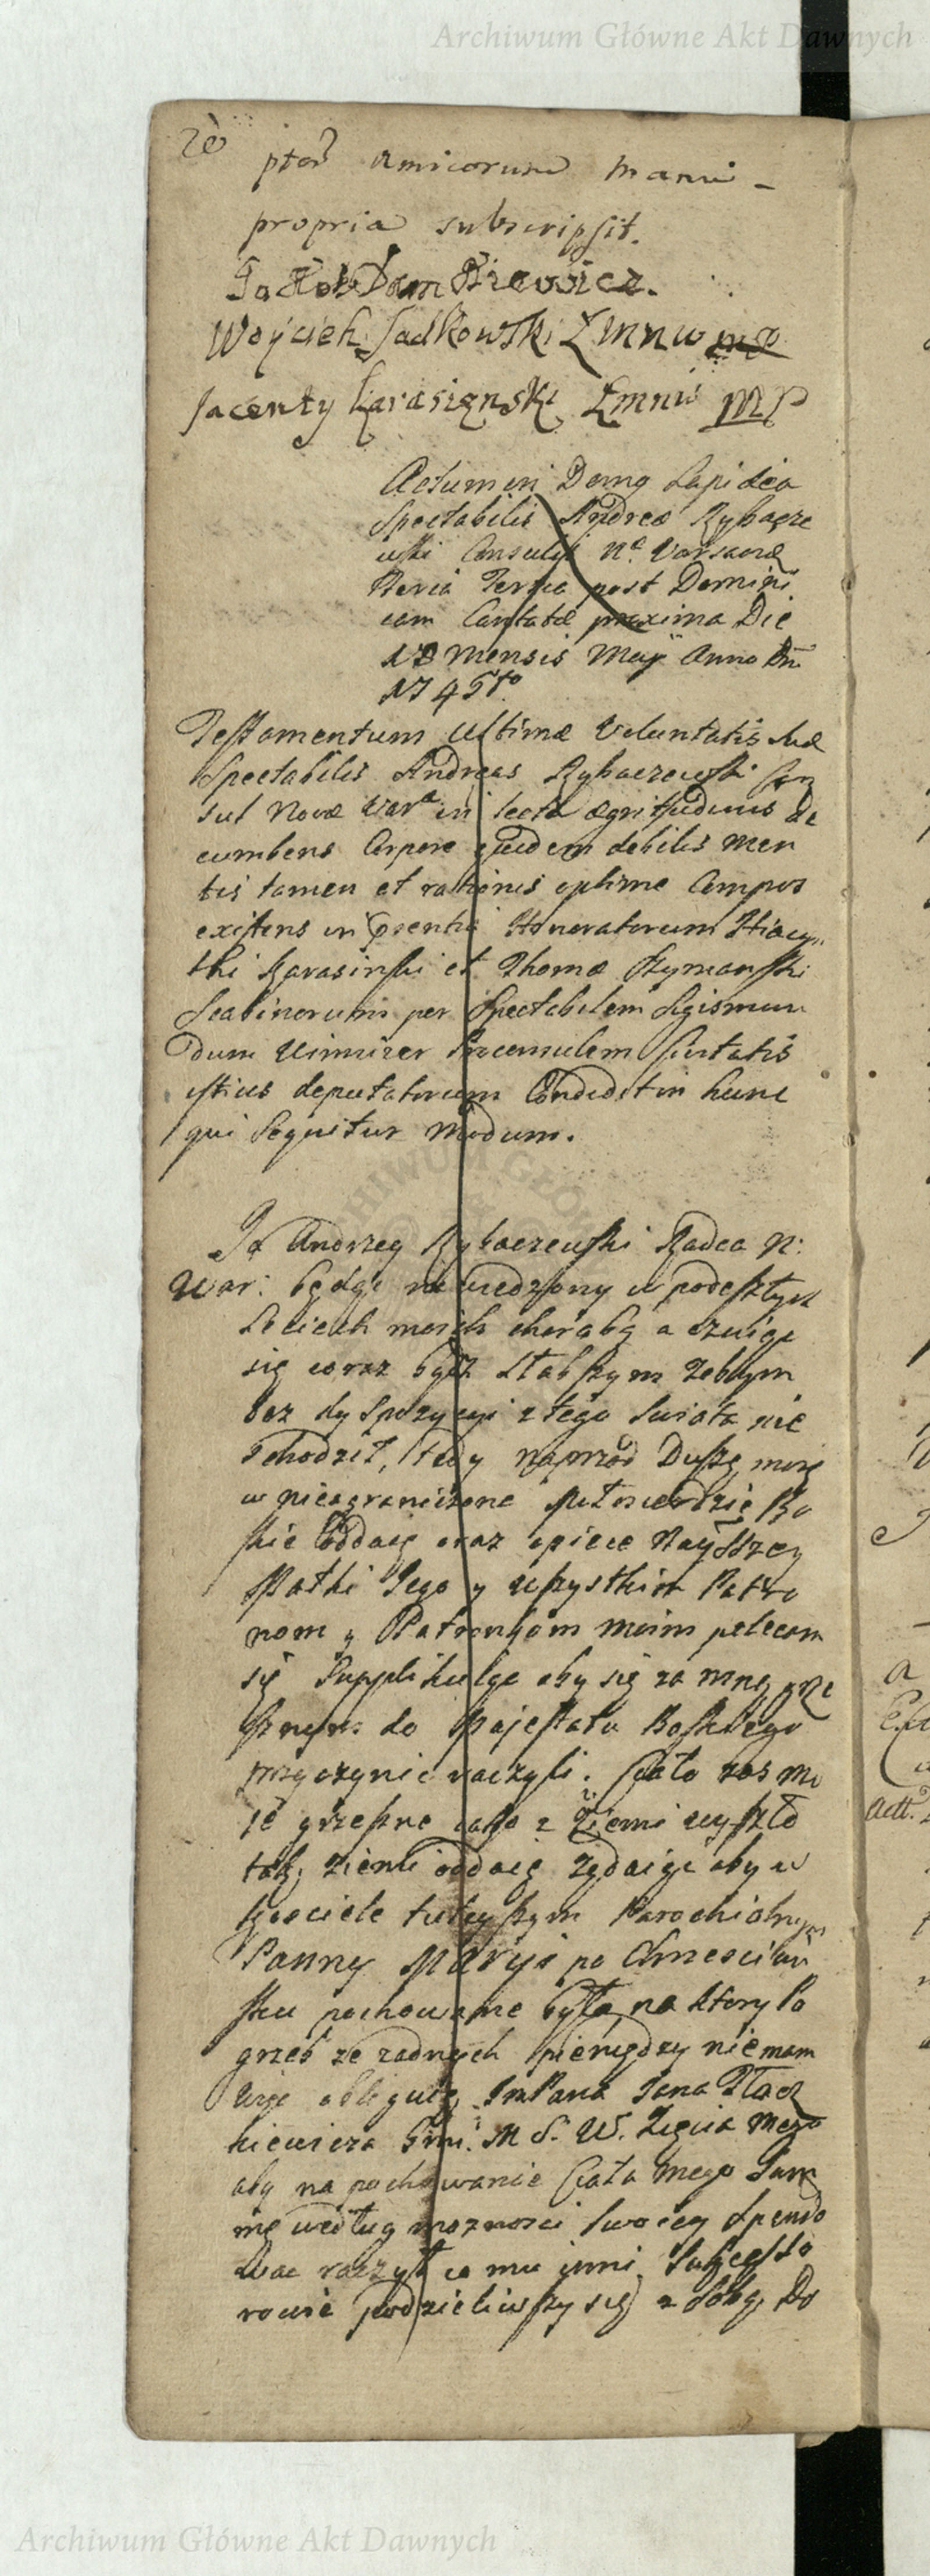 Archiwum Główne Akt Dawnych
ptor amicorum manu
propria subscripsit.
Jakob Damkiewicz.
Woyciech Sadkowski Łmnw mp
Jacenty Karasięnski Łmnw MP
Actum in Domo Lapidea
Spectabilis Andreæ Rybacze
wski Consulis Næ Varsaviæ
Feria Tertia post Domini
cam Cantatæ proxima Die
18 Mensis Maij Anno Dni
1745to
Testamentum Ultimæ Voluntatis suæ
Spectabilis Andreas Rybaczewski Con
sul Novæ Varæ in lecto ægritudinis de
cumbens Corpore quidem debilis men
tis tamen et rationis optime Compos
existens in Prsentia Honoratorum Hiacyn
thi Karasinski et Thomæ Szymanski
Scabinorum per Spectabilem Sigismun
dum Proconsulem Civitatis
istius deputatorum Condidit in hunc
qui Sequitur Modum.
Ja Andrzey Rybaczewski Radca N:
War: będąc nawiedzony w podeszłych
Leciech moich chorobą a czuiąc
się coraz bydz słabszym zebym
bez dyspozycyi z tego swiata nie
schodził, tedy naprzod Duszę moię
w nieograniczone Miłosierdzie Bo
skie oddaię oraz opiece Nayss'zey
Matki Jego y wszystkim Patro
nom y Patronkom moim polecam
się Supplikuiąc aby się za mną grze
sznym do Majestatu Boskiego
przyczynic raczyli. Ciało zas mo
ie grzeszne iako z Ziemi wyszło
tak ziemi oddaię ządaiąc aby w
Kosciele tuteyszym Parochialnym
Panny Maryi po Chrzescian
sku pochowane było, na ktory Po
grzeb ze zadnych pieniędzy nie mam
więc obliguię ImPana Jana Tłacz
kiewicza Gmi: M. S. W. Zięcia mego
aby na pochowanie Ciała mego Sum
mę według moznosci swoiey spendo
wac raczył co mu inni Sukcesso
rowie podzieliwszy się z sobą Do
Archiwum Główne Akt Dawnych